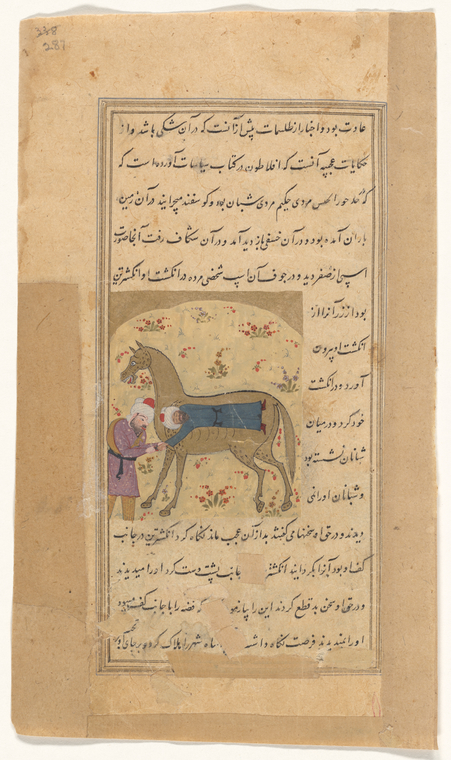 338
287
عادت بود و اخبار از طلسمات پیش از آنست که در آن شکی باشد و از
حکایات عجیبه آنست که افلاطون در کتاب سیاسات آورده است که
مردی حکیم مردی شبان بود و گوسفند میچرانید در آن زمین
باران آمده بود و در آن خسفی بازدید آمد و در آن شکاف رفت آنجا صورت
اسپی از صفر دید و در جوف آن اسپ شخصی مرده در انگشت او انگشترین
بود از زر آنرا از
انگشت او بیرون
آورد و در انگشت
خود کرد و در میان
شبانان نشسته بود
و شبانان او را نمی
دیدند و در حق او سخنها می گفتند بعد از آن عجب ماند نگاه کرد انگشترین در جانب
کف او بود آنرا بگردانید انگشتر جانب پشت دست کرد او را میدیدند
و در حق او سخن بد قطع کردند این را بیازمود که فصه را با جانب کف
او را نمیدیدند فرصت نگاه داشت شاه شهر را هلاک کرد و بر جای